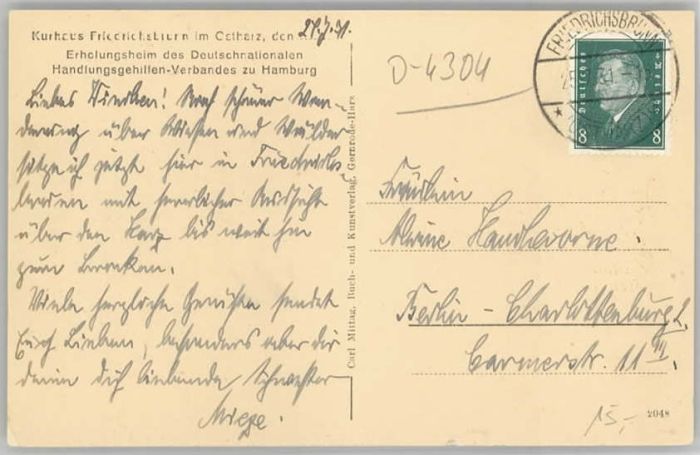 Kurhaus Friedrichsbrunn im Ostharz, den 27.7.31.
Erholungsheim des Deutschnationalen
Handlungsgehilfen-Verbandes zu Hamburg
Liebes! Nach schöner Wan-
derung über Wiesen und Wälder
sitze ich jetzt hier in Friedrichs
brunn mit herrlicher Aussicht
über den Harz bis weit hin
zum Brocken.
Viele herzliche Grüße sendet
Euch Lieben, besonders aber dir
deine dich liebende Schwester
Miege.
Carl Mittag, Buch- und Kunstverlag, Gernrode-Harz
D-4304
FRIEDRICHSBRUNN
Deutsches Reich
8 8
Fräulein
Berlin - Charlottenburg 2,
Carmerstr. 11 III
15,-
2048